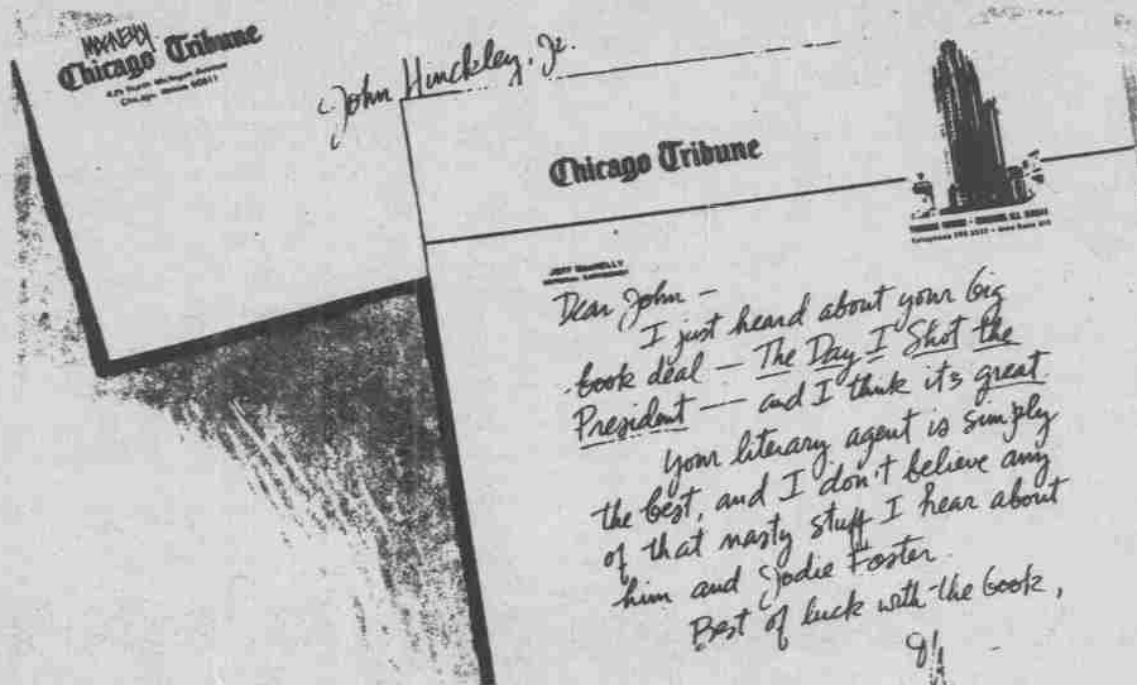 MACNELLY
Chicago Tribune
435 North Michigan Avenue
Chicago, Illinois 60611
John Hinckley, Jr.
Chicago Tribune
JEFF MacNELLY
Dear John —
I just heard about your big
book deal — The Day I Shot the
President — and I think its great
your literary agent is simply
the best, and I don't believe any
of that nasty stuff I hear about
him and Jodie Foster
Best of luck with the book,